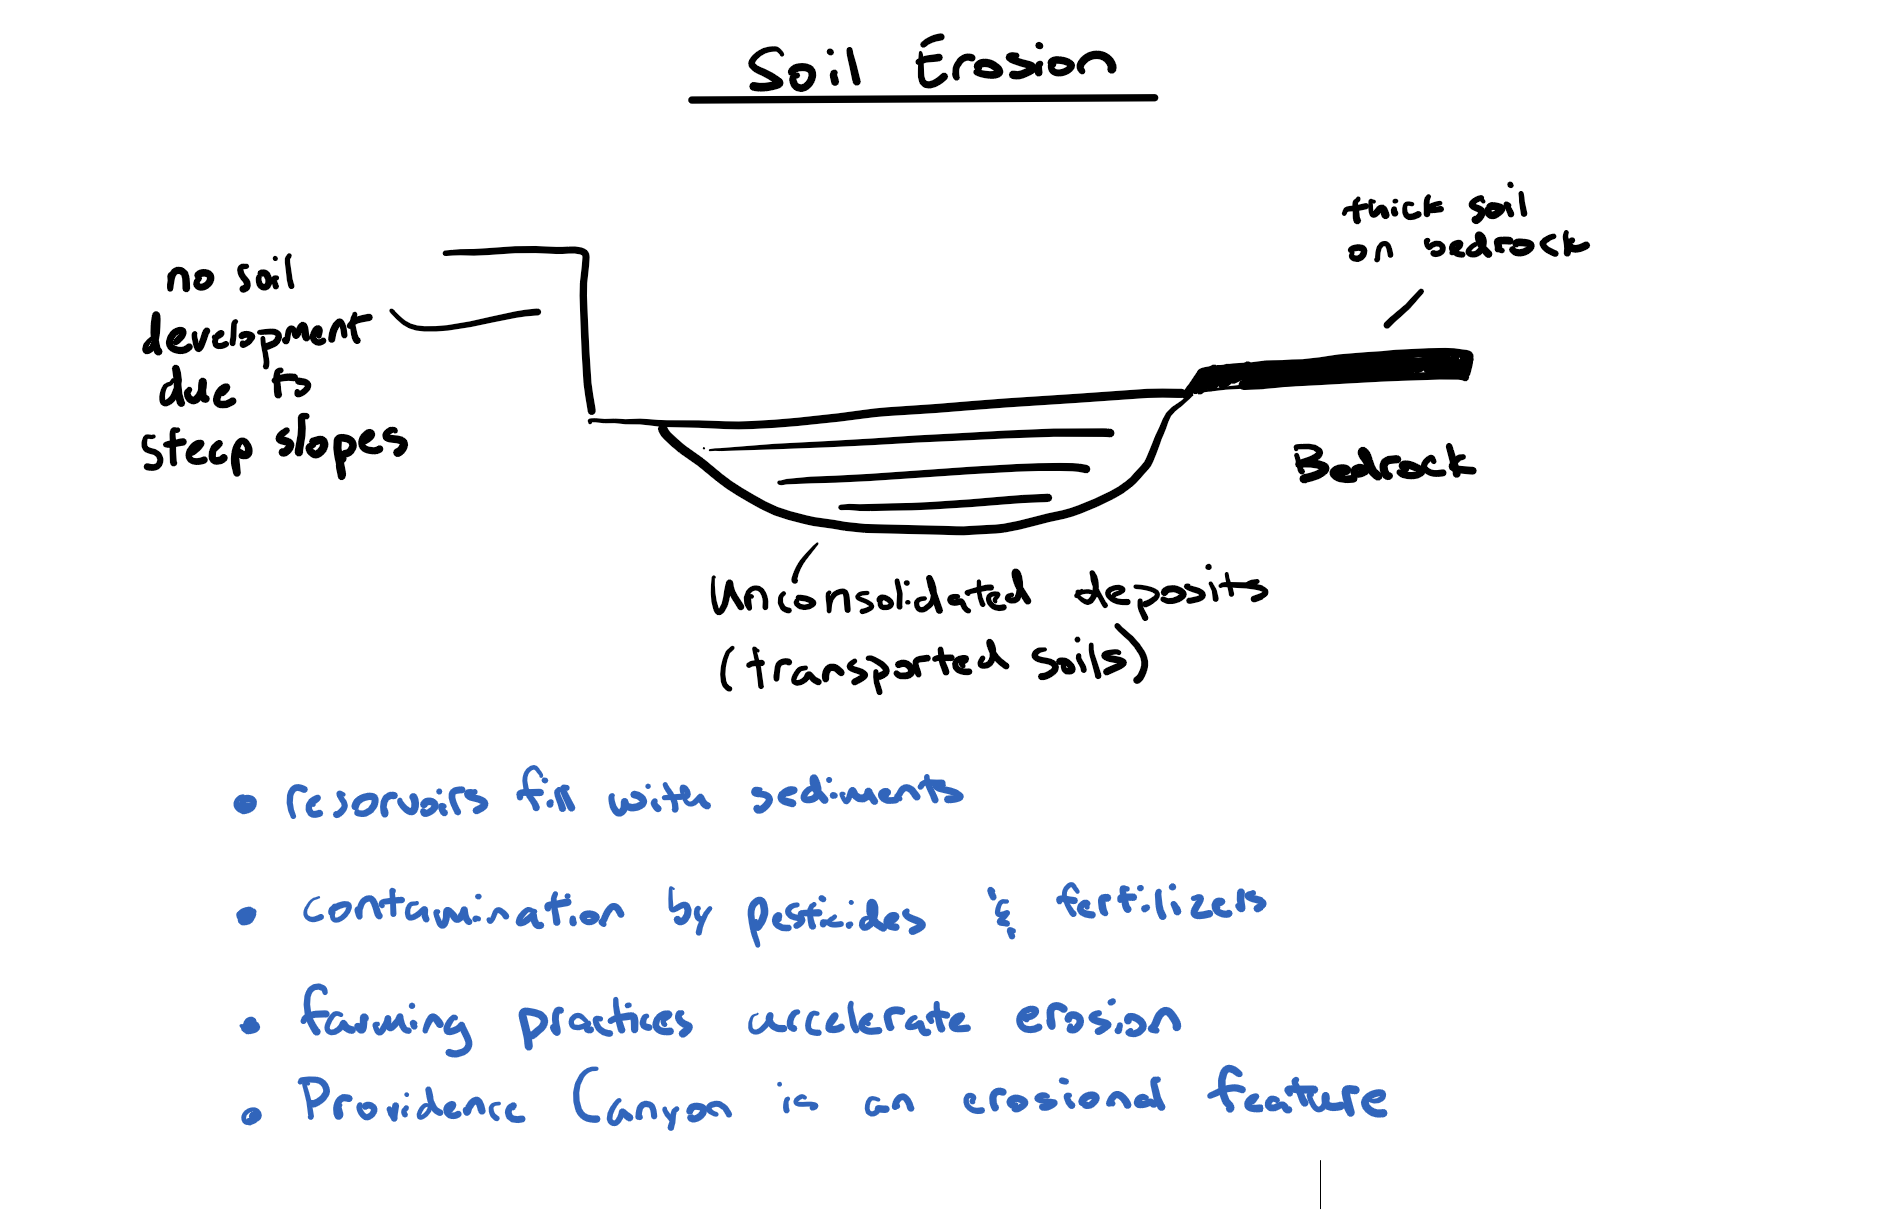 Soil Erosion
thick soil
on bedrock
no soil
development
due to
steep slopes
Bedrock
Unconsolidated deposits
(transported soils)
• resorvoirs fill with sediments
• contamination by pesticides & fertilizers
• farming practices accelerate erosion
• Providence Canyon is an erosional feature